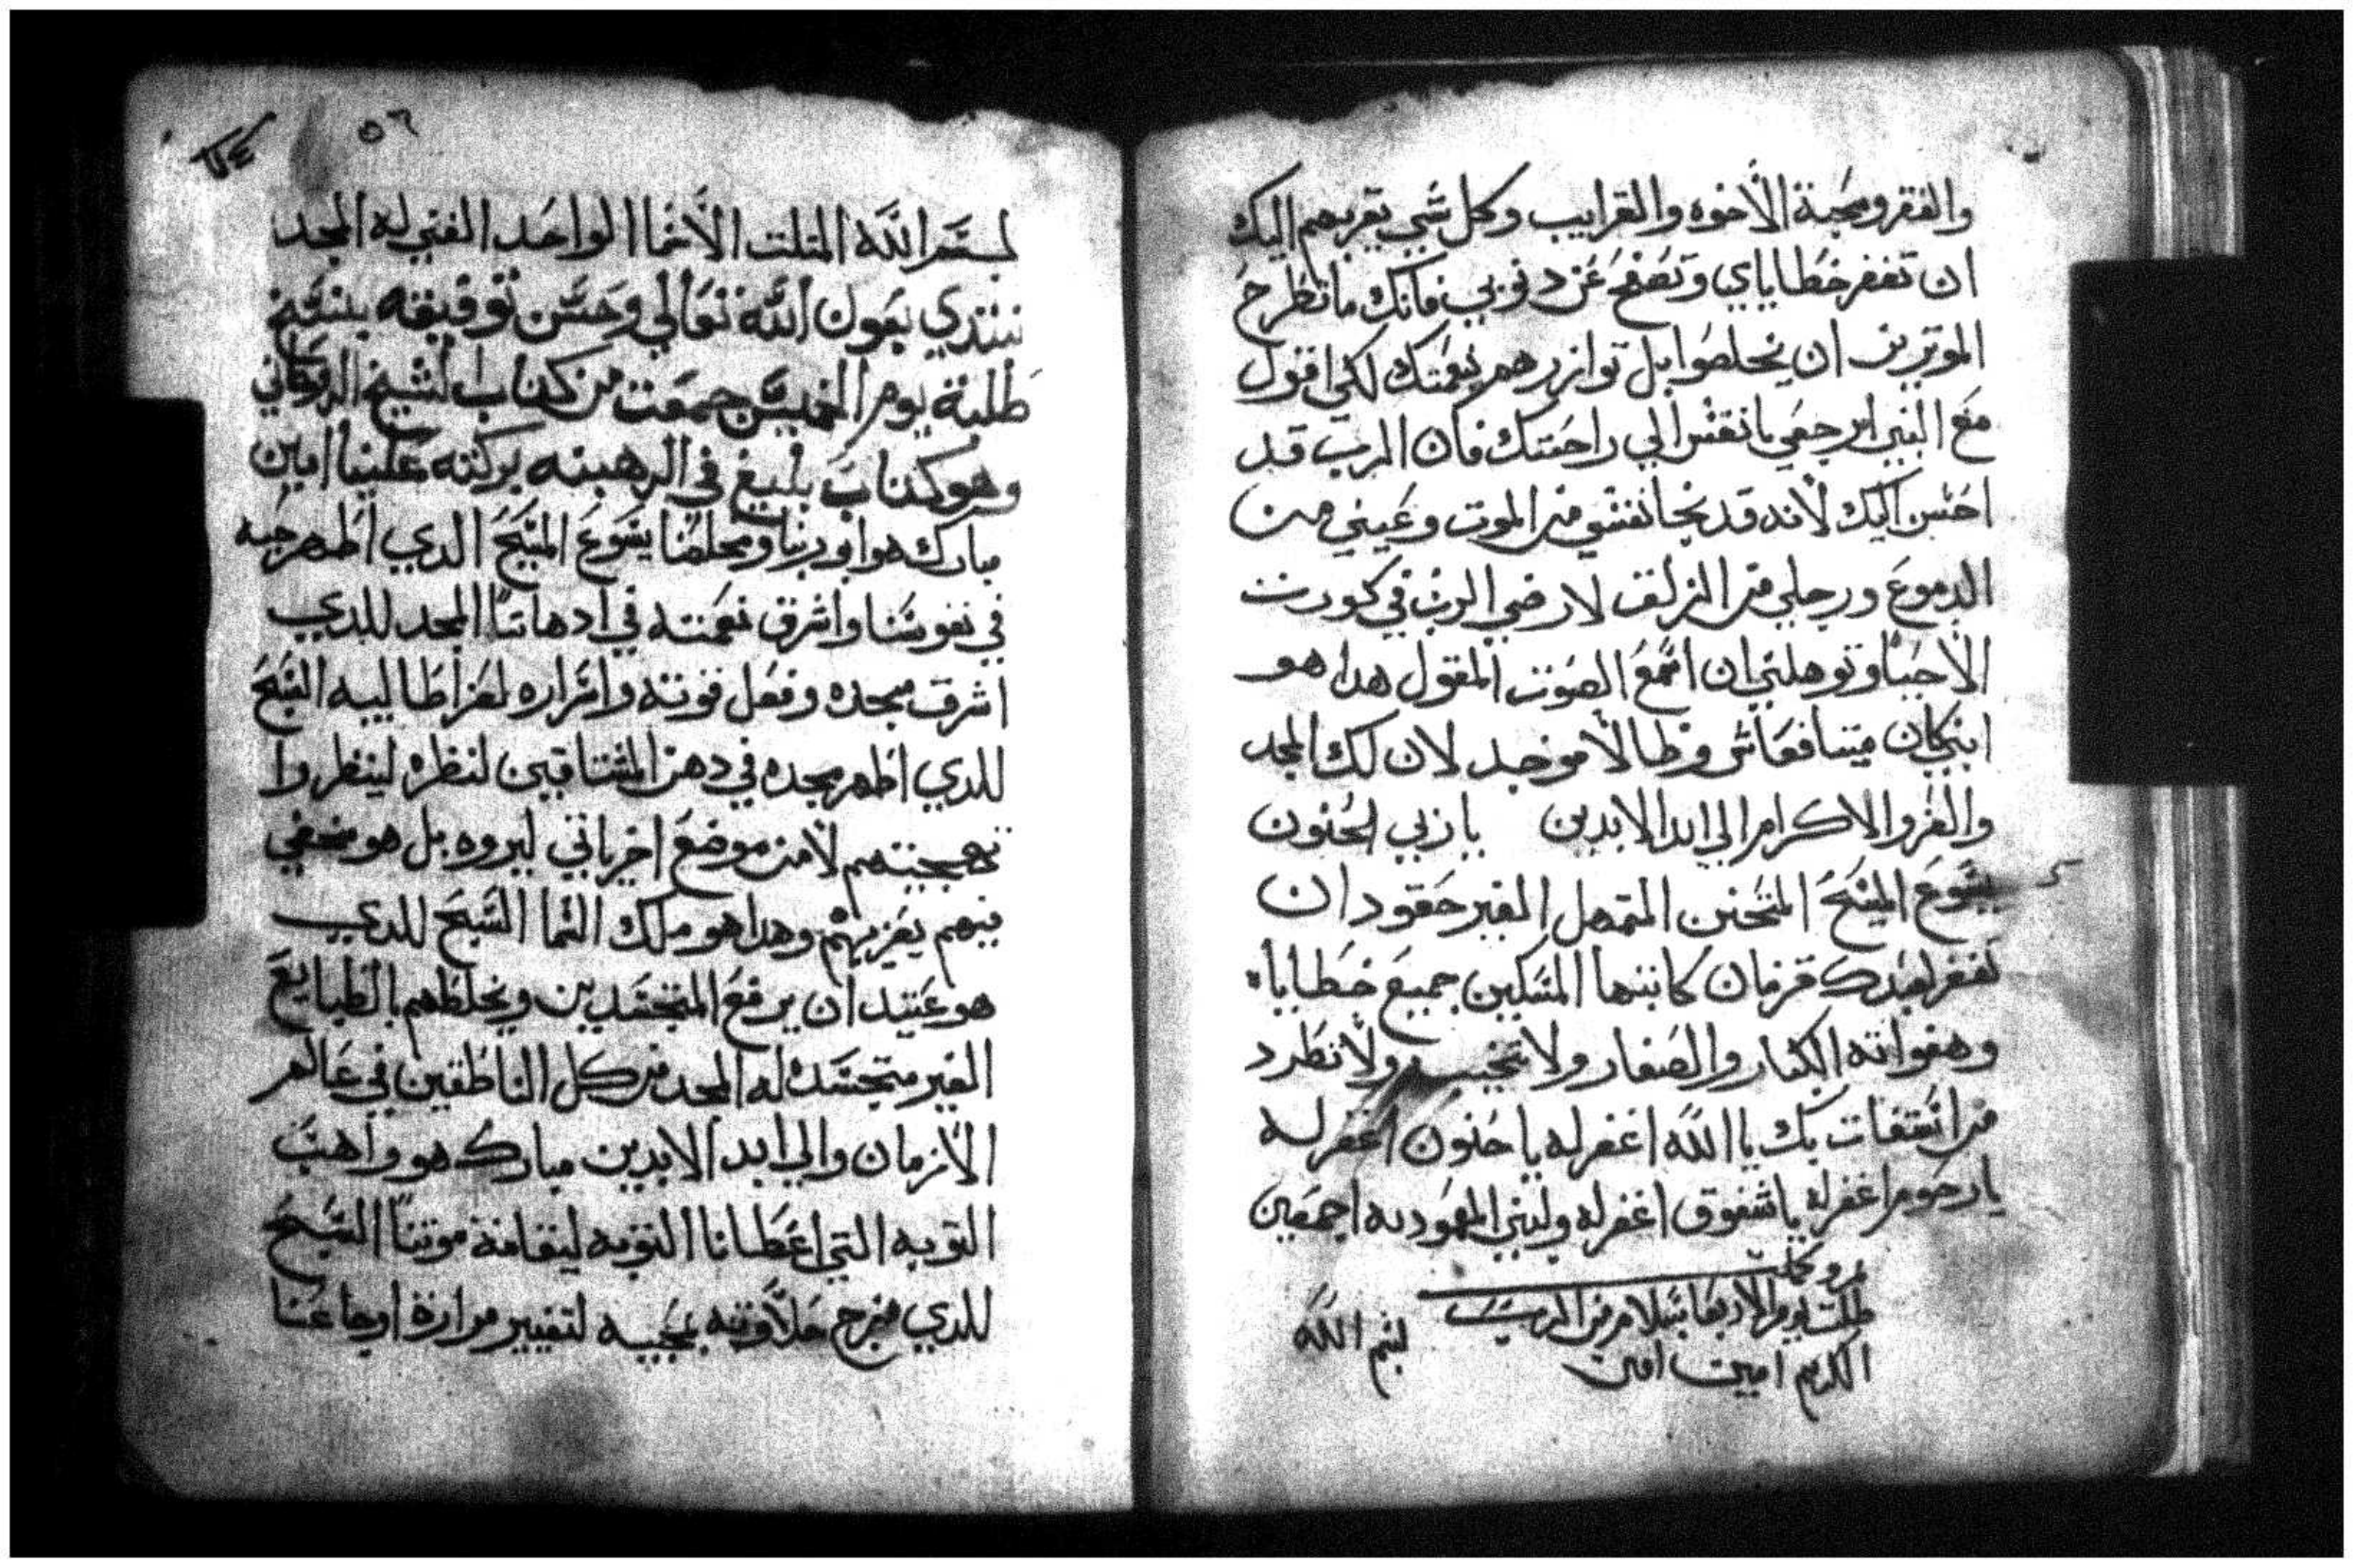 والفقر ومحبة الاخوه والقرابيب وكل شي يقربهم اليك
ان تغفر خطاياي وتصفح عن دنوبي فانك ما تطرح
الموترين ان يخلصوا بل توازرهم بنعمتك لكي اقول
مع النبي ارجعي يا نفسي الي راحتك فان الرب قد
احسن اليك لانه قد نجا نفسي من الموت وعيني من
الدموع ورجلي من الزلف لارضي الرب في كورت
الاحيا وتوهلني ان اسمع الصوت المقول هدا هو
ابني كان ميتا فعاش وضالا موجد لان لك المجد
والعز والاكرام الي ابد الابدين يا ربي الحنون
يسوع المسيح المتحنن المتمهل الغير حقود ان
تغفر لعبدك قزمان كاتبها المسكين جميع خطاياه
وهفواته الكبار والصغار ولا تخيب ولا تطرد
من استغات بك يا الله اغفر له يا حنون اغفر له
يا رحوم اغفر له يا شفوق اغفر له ولبني المعموديه اجمعين
طلبت يوم الاربعا بسلام من الرب
بسم الله
الكريم امين امين
٥٦
بسم الله المتلت الاقنما الواحد الغني له المجد
نبتدي بعون الله تعالي وحسن توفيقه بنسخ
طلبة يوم الخميس جمعت من كتاب الشيخ الروحاني
وهو كتاب بليغ في الرهبنه بركته علينا امين
مبارك هو ابو ربنا ومخلصنا يسوع المسيح الدي اظهر حبه
في نفوسنا واشرق نعمته في ادهاننا المجد للدي
اشرق مجده وفعل قوته واسراره لعزا طالبيه السبح
للدي اظهر مجده في دهن المشتاقين لنظره لينظروا
بهجيتهم لا من موضع اخر ياتي ليروه بل هو مخفي
فيهم يعزيهم وهدا هو ملك السما السبح للدي
هو عتيد ان يرفع المتجسدين ويخلطهم بالطبايع
الغير متجسده له المجد من كل الناطقين في عالم
الازمان والي ابد الابدين مبارك هو واهب
التوبه التي اعطانا التوبه ليقامة موتنا السبح
للدي مزج حلاوته بحبيه لتغيير مرارة اوجاعنا